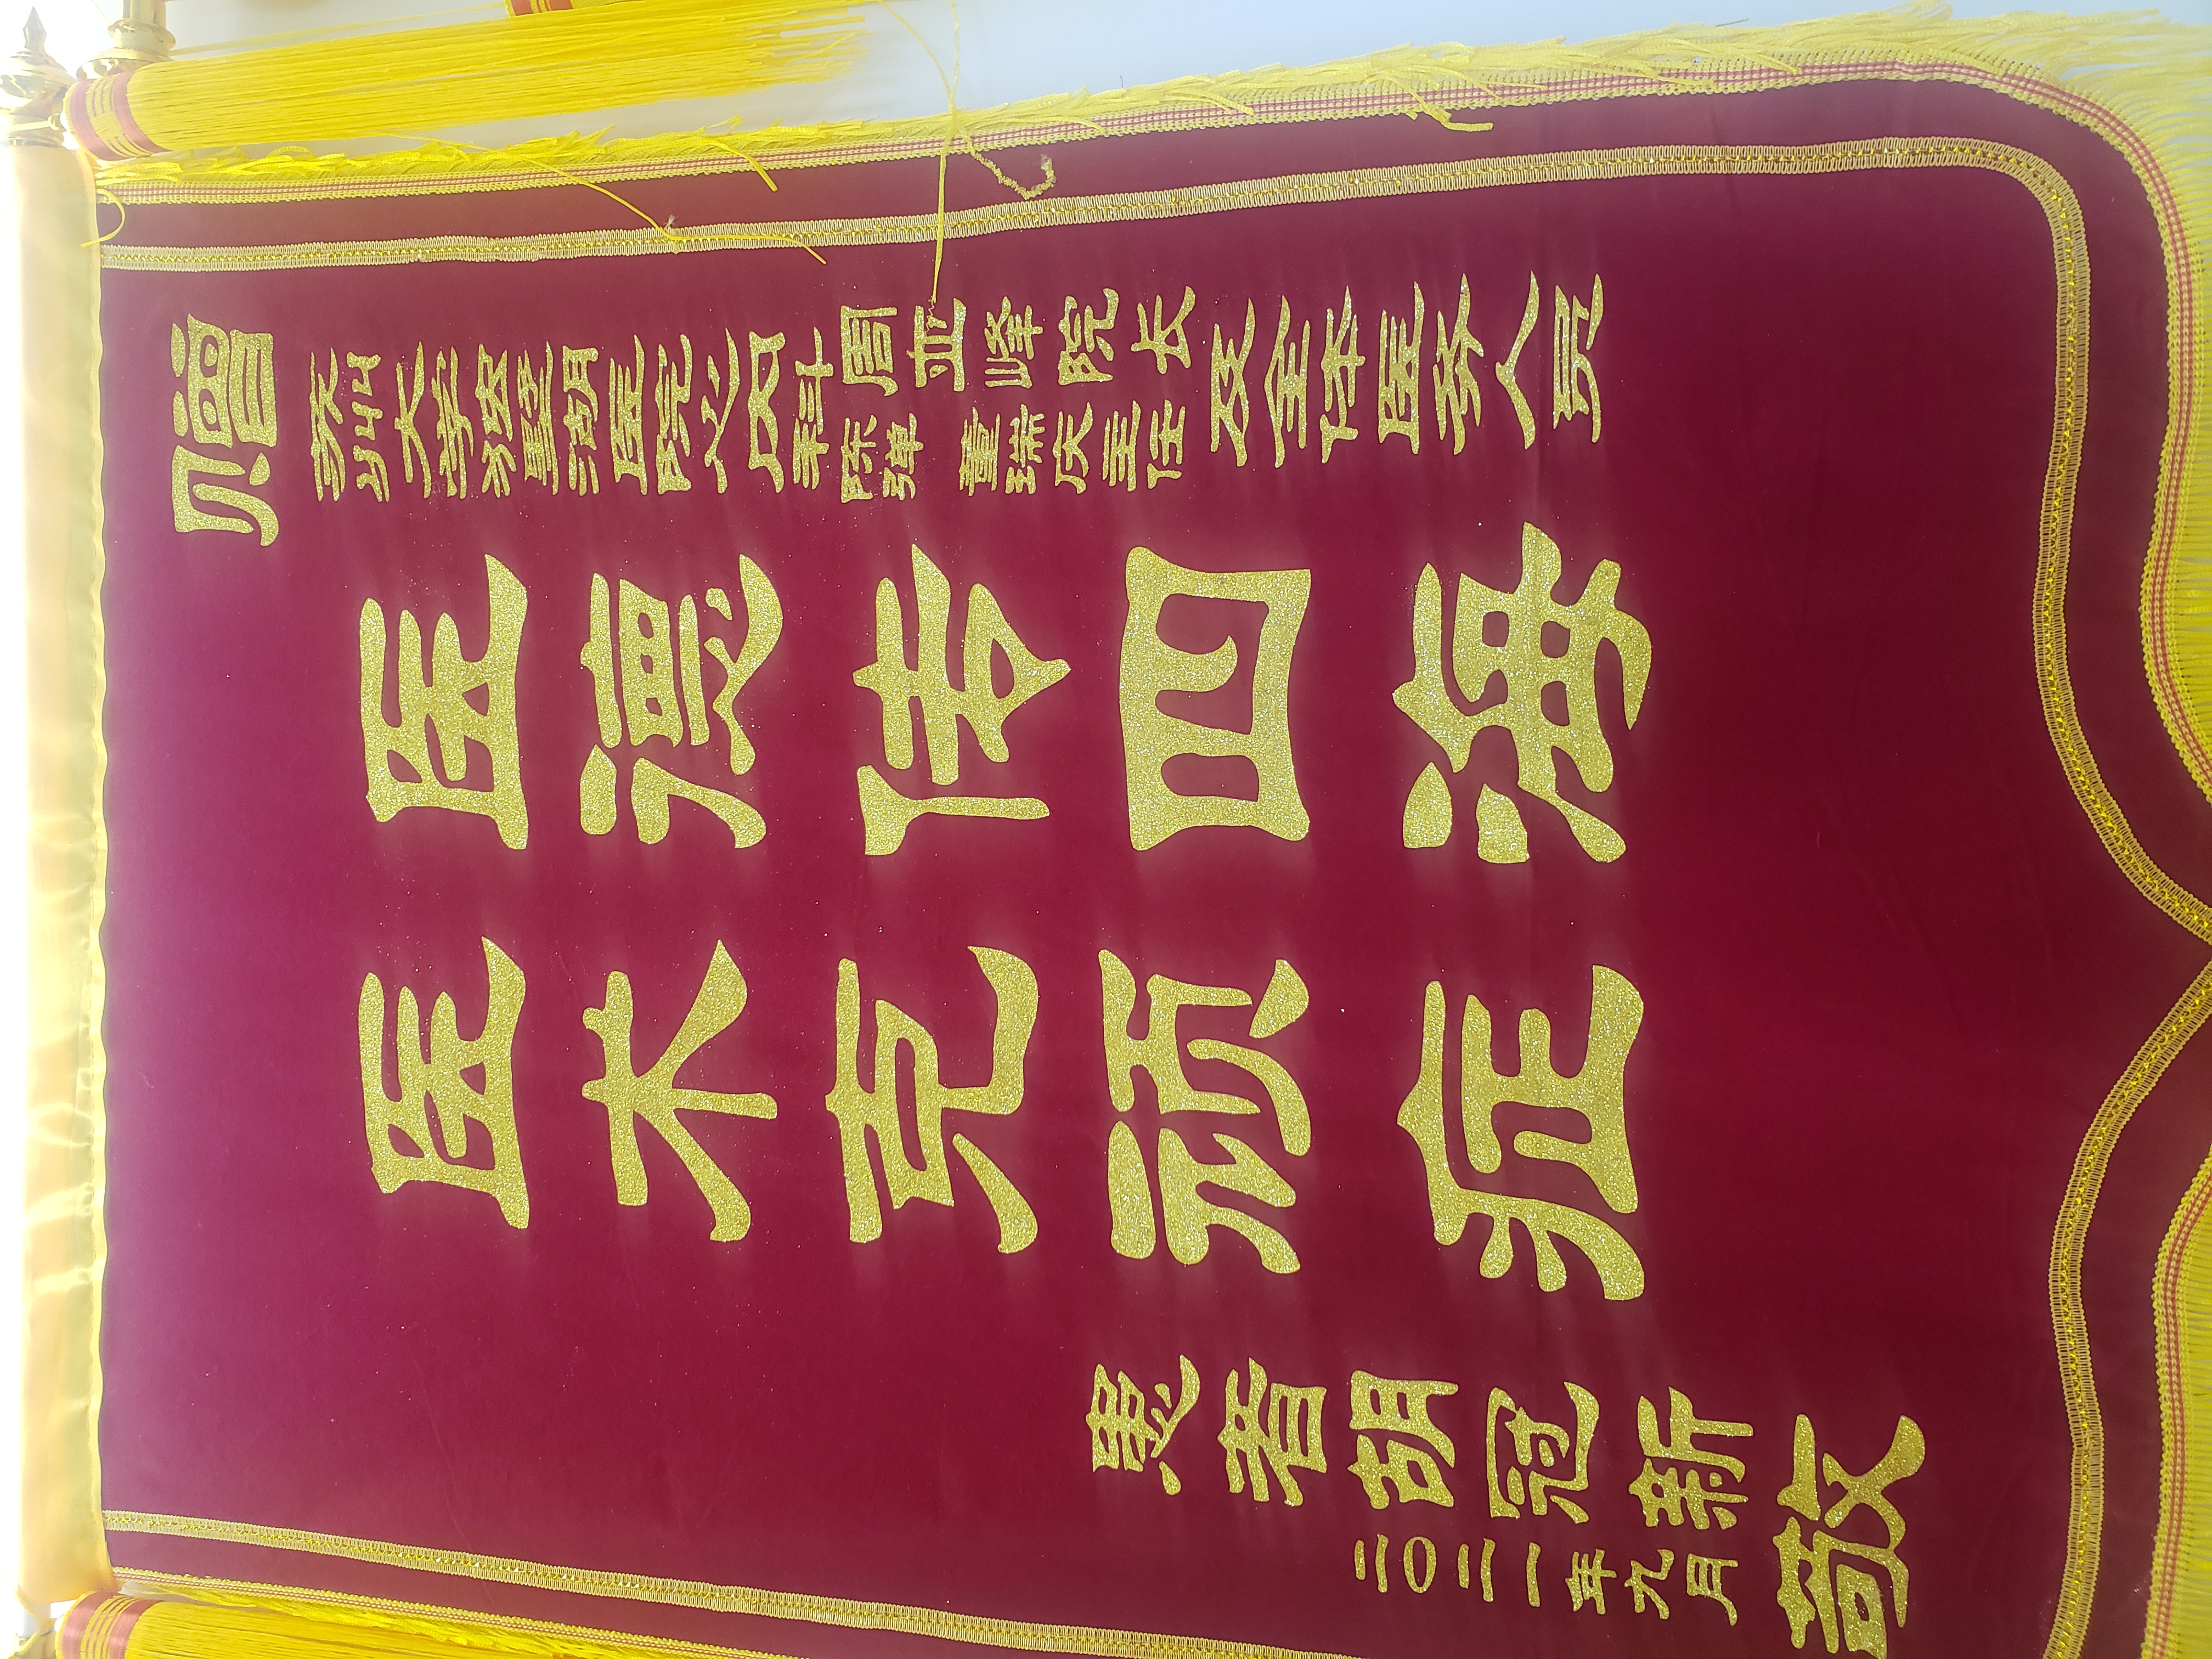 赠
苏州大学独墅湖医院心内科
周亚峰院长
陈弹 董瑞庆主任
及全体医务人员
医德传四海
医术克顽症
患者胡冠新
敬
二〇二一年九月